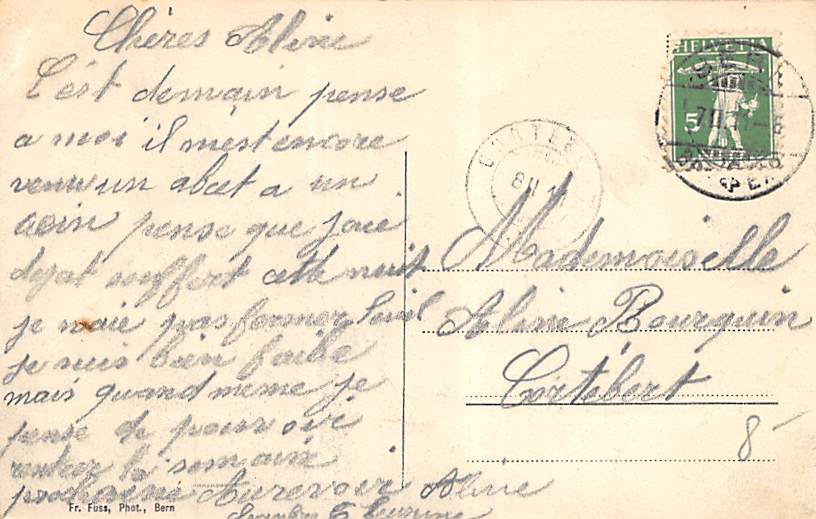 Chères Aline
C'est demain pense
a moi il m'est encore
venu un abcet a un
coin pense que j'aie
dejat souffert cette nuit
je n'aie pas fermer l'euil
je suis bien faible
mais quand meme je
pense de pouvoir
rentrer la semaine
prochaine Aurevoir Aline
Fr. Fuss, Phot., Bern
HELVETIA
5
8 II 11
Mademoiselle
Aline Bourquin
Cortébert
8-